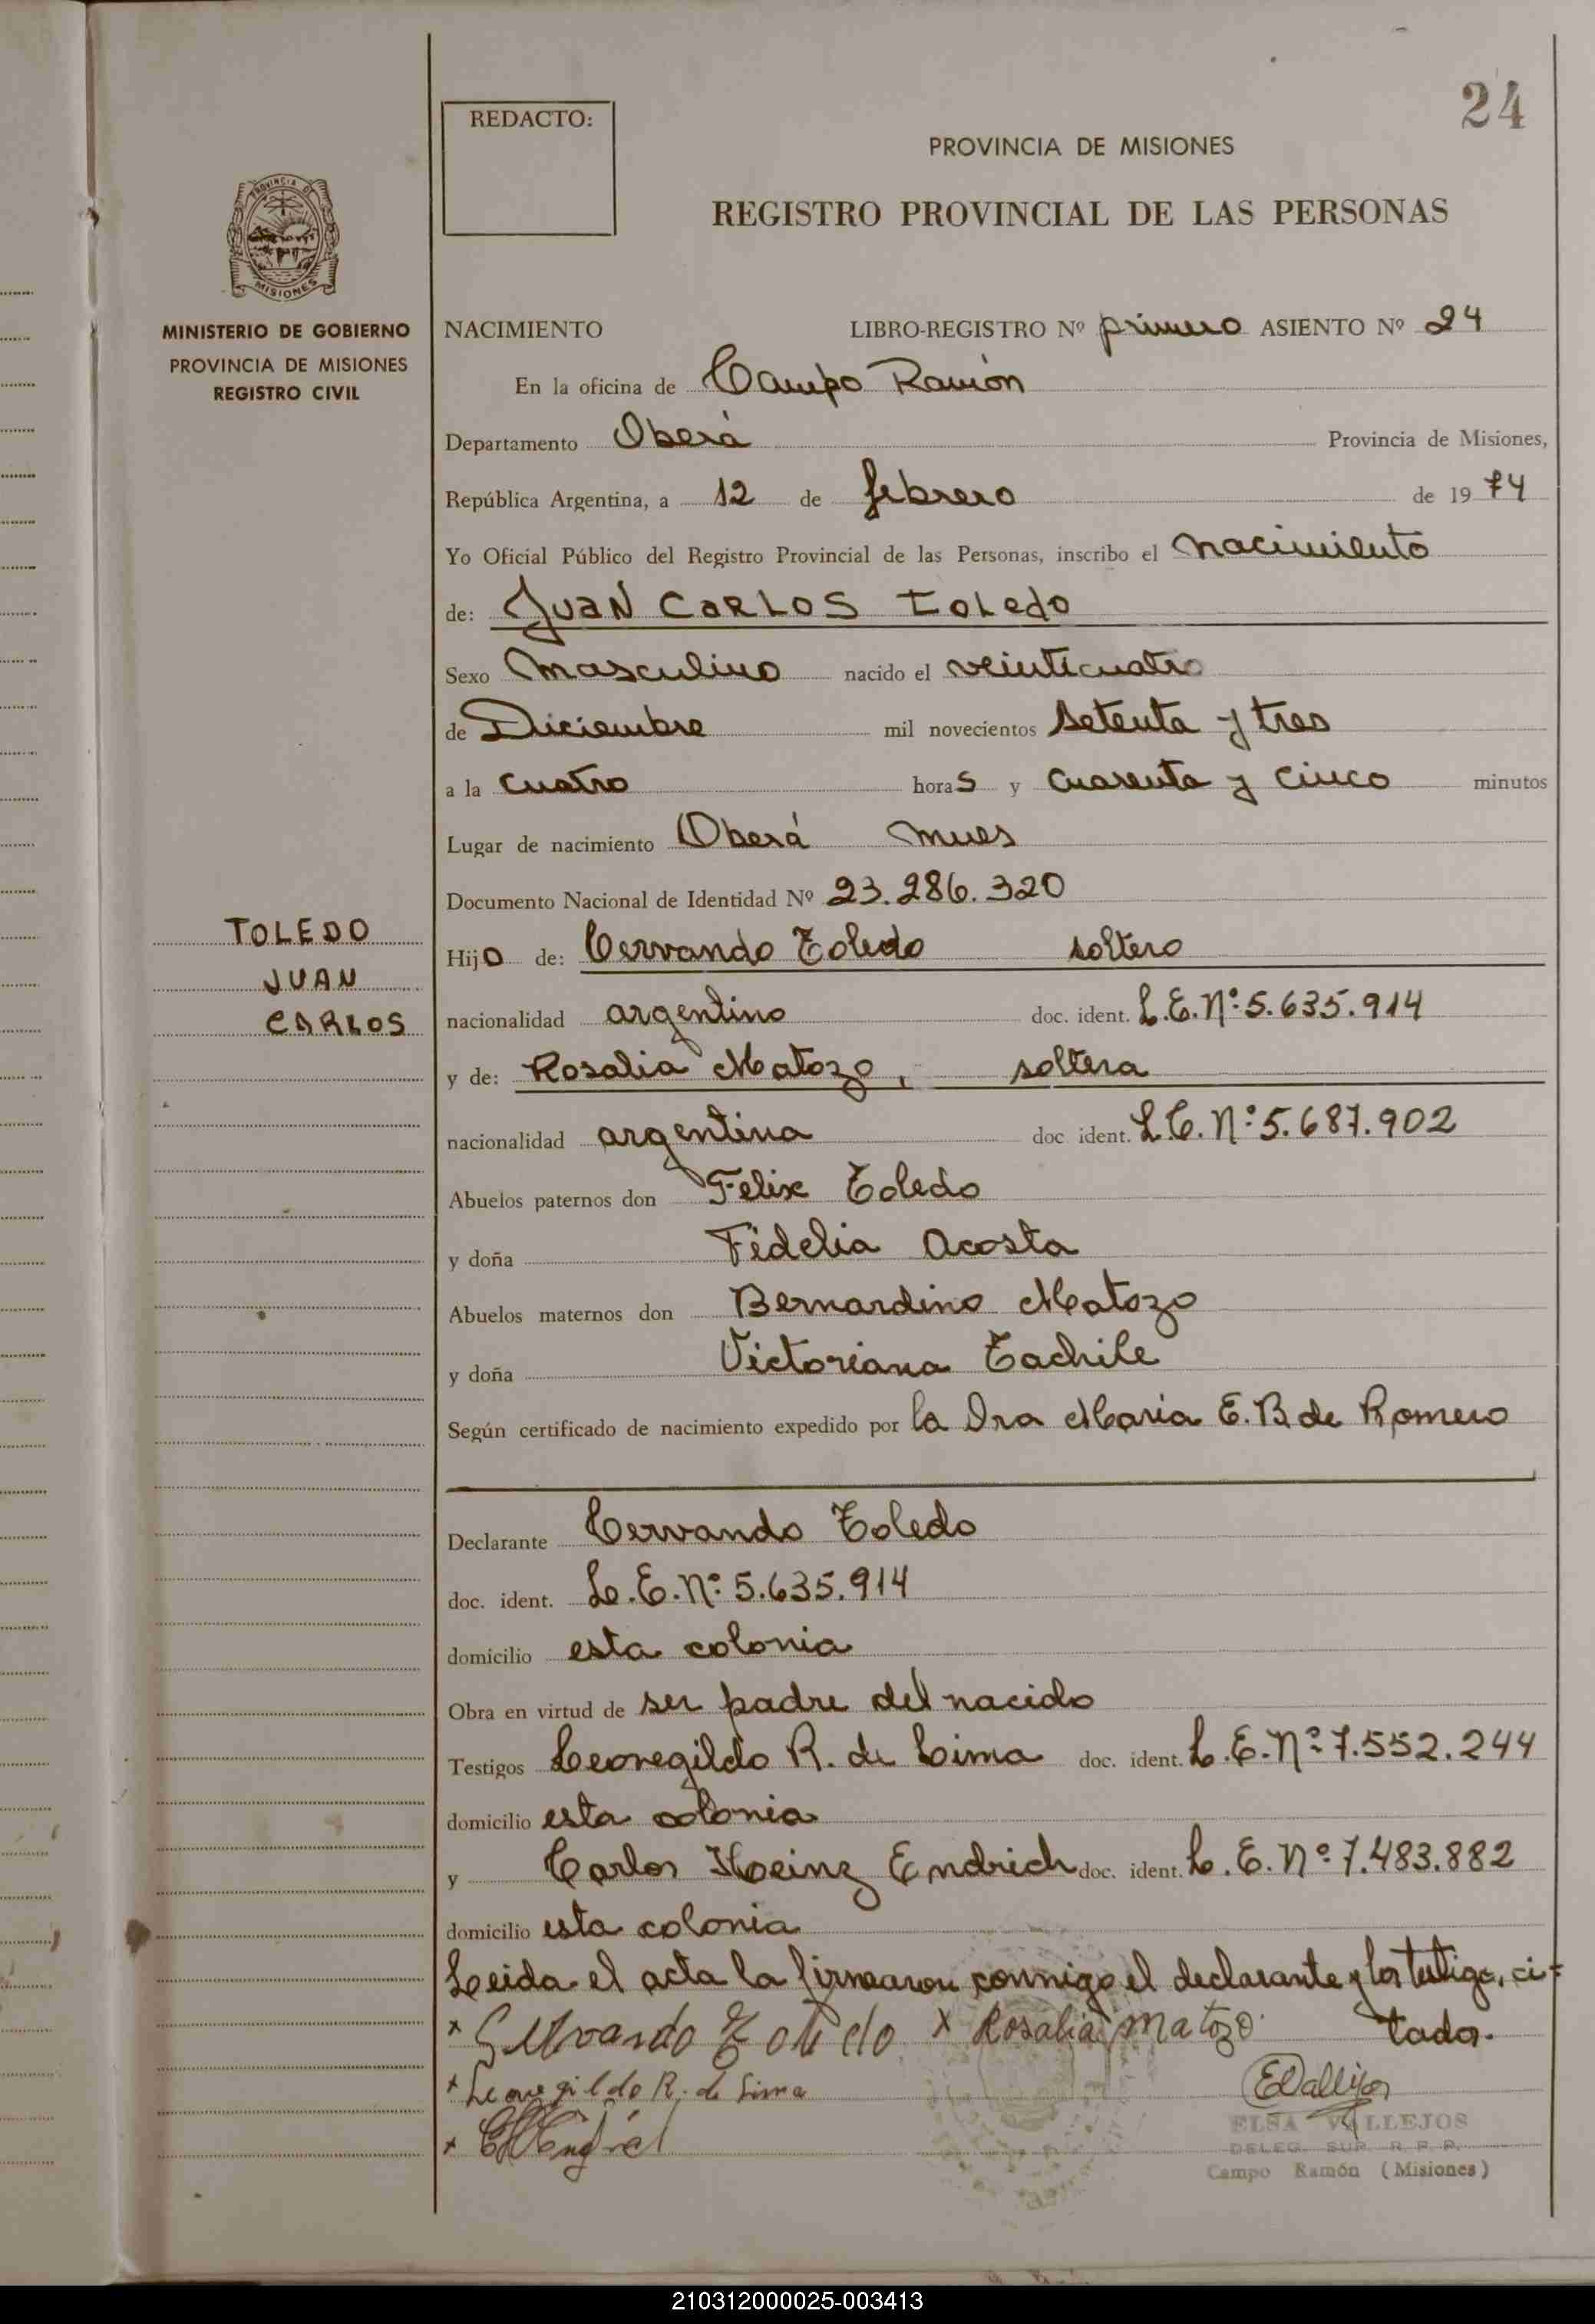 24
REDACTO:
PROVINCIA DE MISIONES
REGISTRO PROVINCIAL DE LAS PERSONAS
PROVINCIA DE
MISIONES
MINISTERIO DE GOBIERNO
PROVINCIA DE MISIONES
REGISTRO CIVIL
NACIMIENTO LIBRO-REGISTRO Nº primero ASIENTO Nº 24
En la oficina de Campo Ramón
Departamento Oberá Provincia de Misiones,
República Argentina, a 12 de febrero de 1974
Yo Oficial Público del Registro Provincial de las Personas, inscribo el nacimiento
de: JUAN CARLOS TOLEDO
Sexo Masculino nacido el veinticuatro
de Diciembre mil novecientos setenta y tres
a la cuatro horas y cuarenta y cinco minutos
Lugar de nacimiento Oberá Mnes
Documento Nacional de Identidad Nº 23.286.320
TOLEDO
JUAN
CARLOS
Hijo de: Cervando Toledo soltero
nacionalidad argentino doc. ident. L.E. Nº: 5.635.914
y de: Rosalia Matozo, soltera
nacionalidad argentina doc ident. L.C. Nº: 5.687.902
Abuelos paternos don Felix Toledo
y doña Fidelia Acosta
Abuelos maternos don Bernardino Matozo
y doña Victoriana Tachile
Según certificado de nacimiento expedido por la Dra Maria E. B de Romero
Declarante Cervando Toledo
doc. ident. L.E. Nº: 5.635.914
domicilio esta colonia
Obra en virtud de ser padre del nacido
Testigos Leovegildo R. de Lima doc. ident. L.E. Nº: 7.552.244
domicilio esta colonia
y Carlos Heinz Endrich doc. ident. L.E. Nº 7.483.882
domicilio esta colonia
Leida el acta la firmaron conmigo el declarante y los testigos ci-
tados.
x Servando Toledo x Rosalia Matozo
x Leovegildo R. de Lima
EVallejos
ELSA VALLEJOS
DELEG. SUP. R. P. P.
Campo Ramón (Misiones)
210312000025-003413